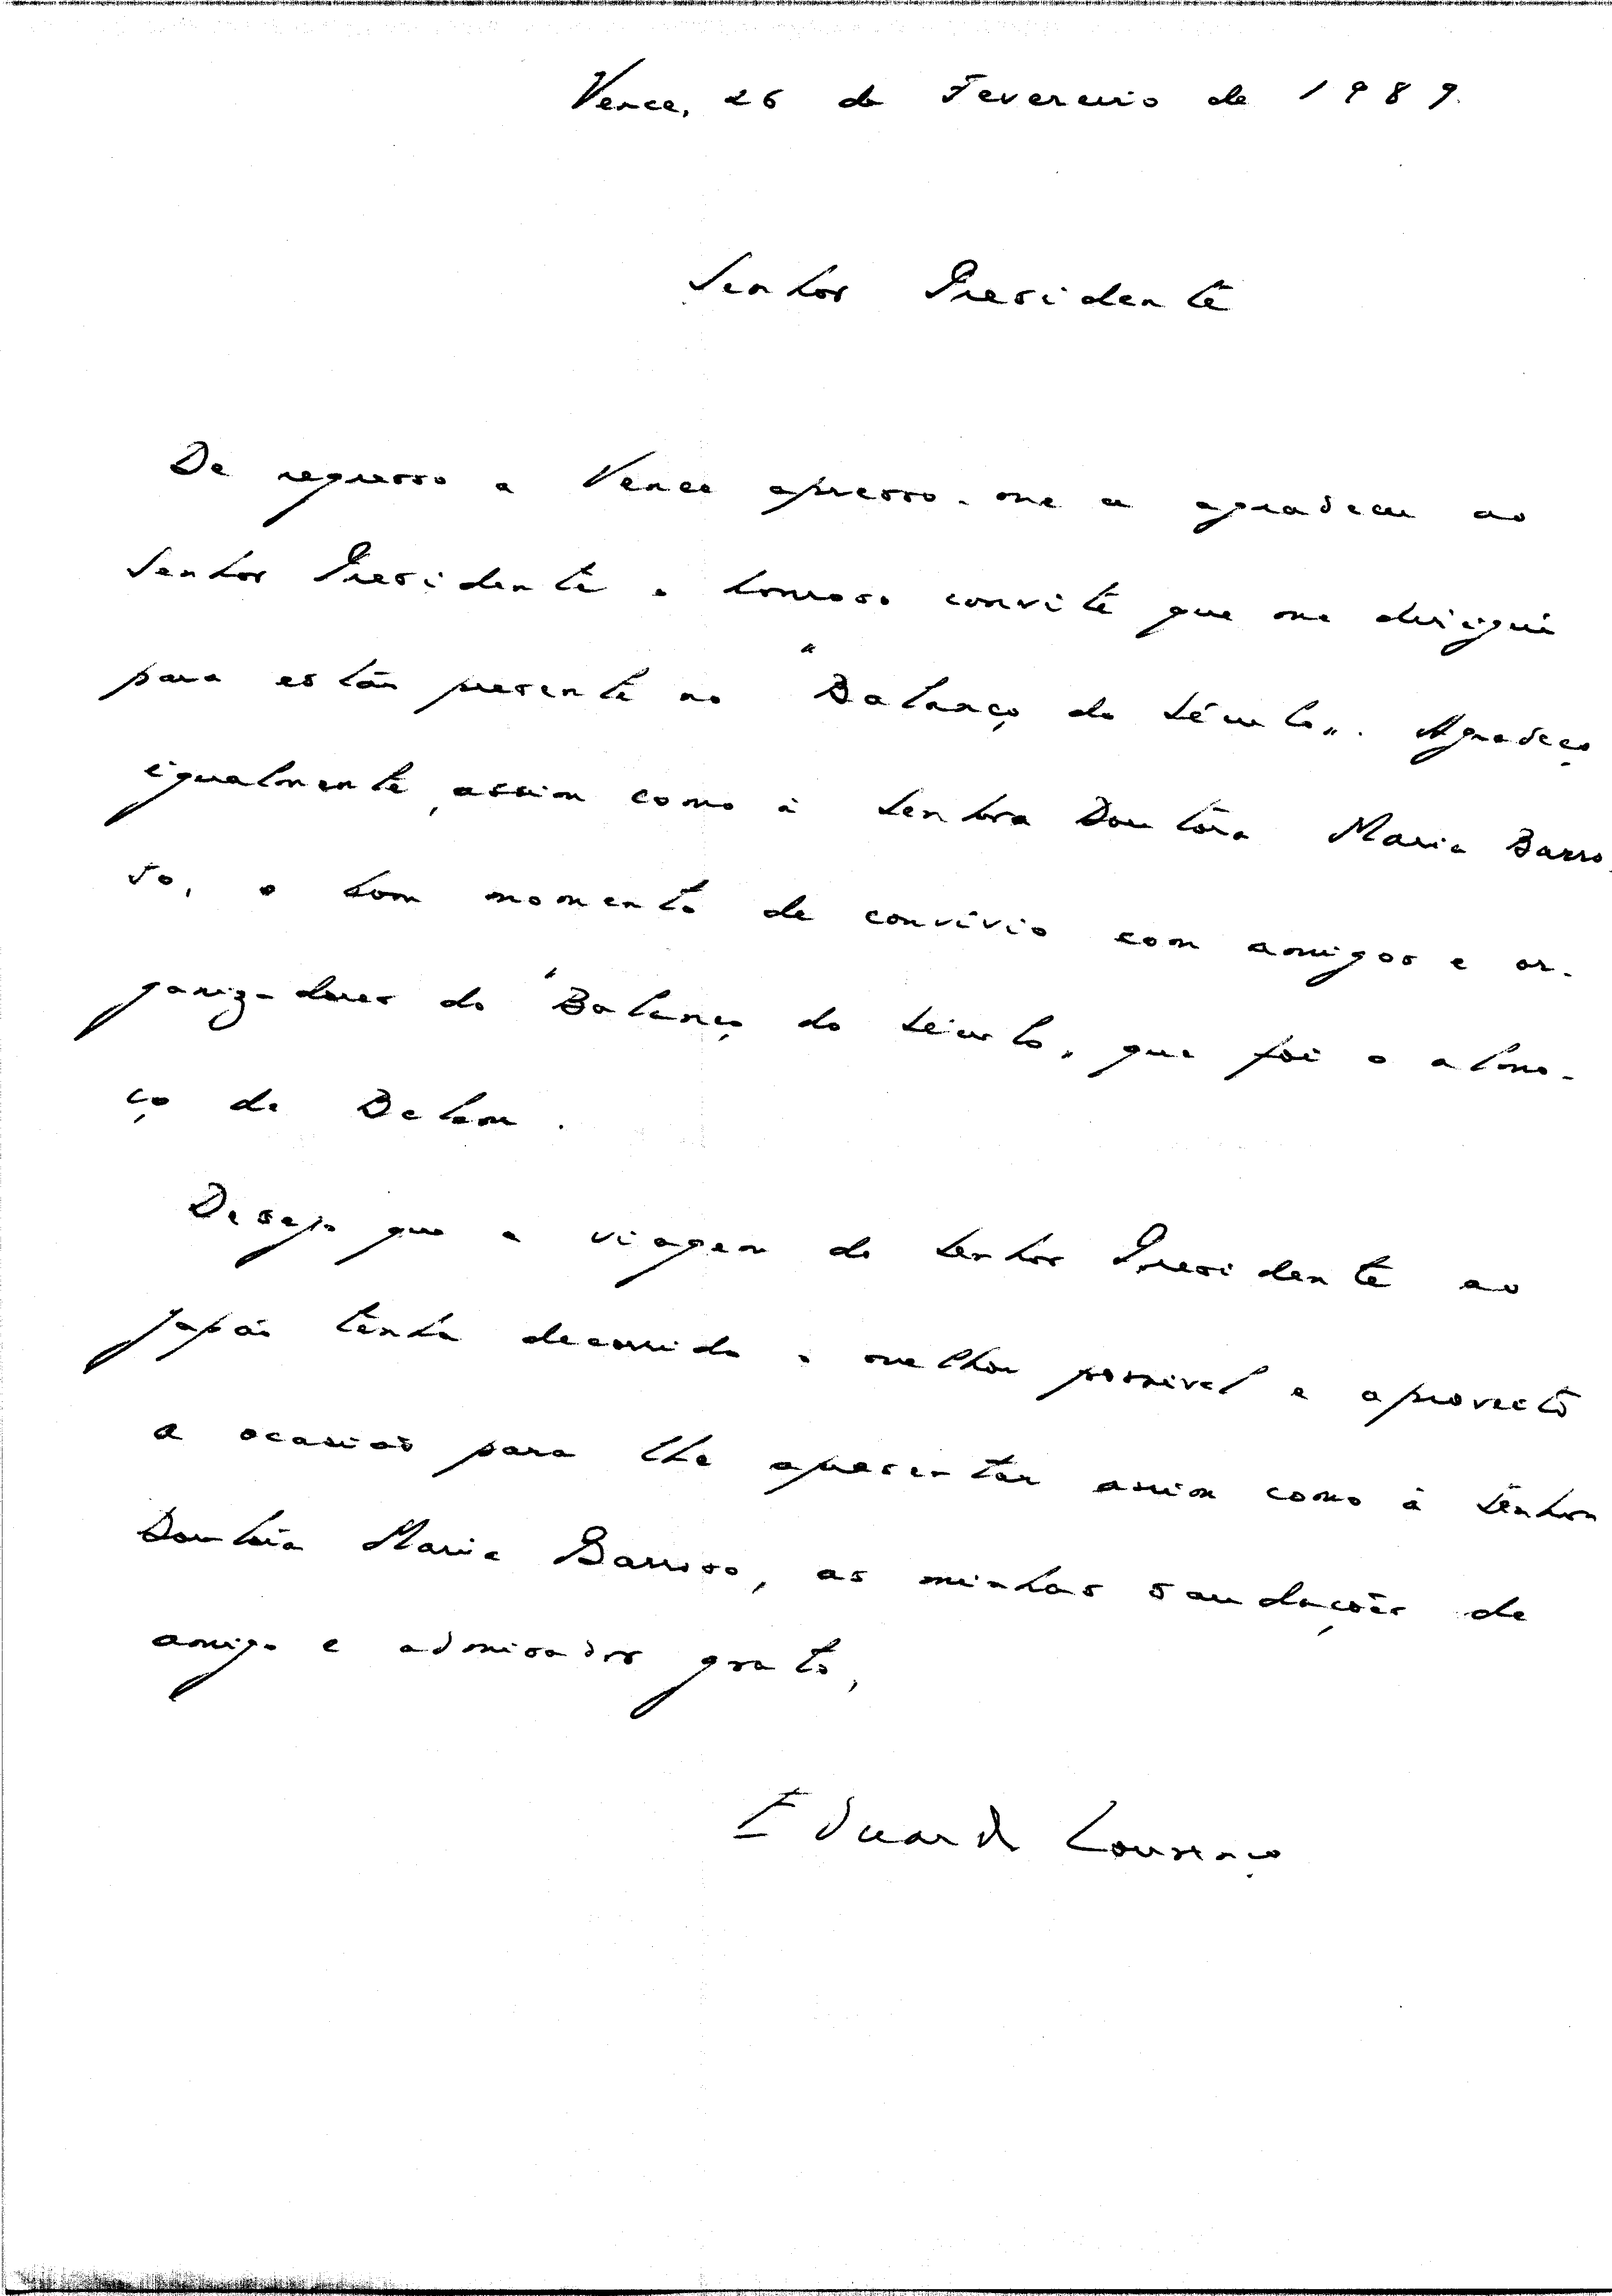 Vence, 26 de Fevereiro de 1989.
Senhor Presidente
De regresso a Vence apresso-me a agradecer ao
Senhor Presidente o honroso convite que me dirigiu
para estar presente no "Balanço do Século". Agradeço
igualmente, assim como à Senhora Doutora Maria Barro-
so, o bom momento de convívio com amigos e or-
ganizadores do "Balanço do Século", que foi o almo-
ço de Belem.
Desejo que a viagem do Senhor Presidente ao
Japão tenha decorrido o melhor possivel e aproveito
a ocasião para lhe apresentar assim como à Senhora
Doutora Maria Barroso, as minhas saudações de
amigo e admirador grato,
Eduardo Lourenço